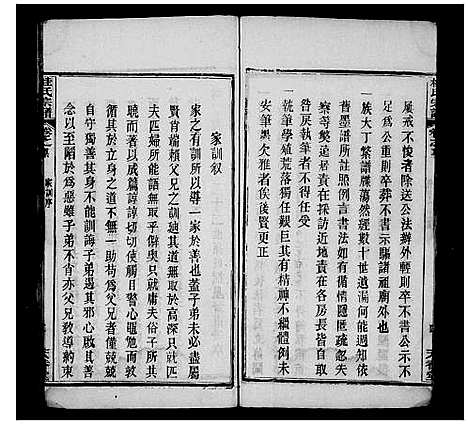 風戒不悛者除送公法辦外輕則卒不書公示不
足爲公重則卒葬不書示驅諸祖廟外也
一族大丁繁譜牒蕩然經數十世遺漏何能周知依
舊墨譜所註照例言書法如有循情隱匿疏忽失
察等獘遠責在分房近地責在各房長皆自取
咎戾執筆者不得任受
一執筆學殖荒落獨任艱巨其有精神不繼體例未
安筆誤名者俟後賢更正
家訓叙
家之有訓所以導一家於善也蓋子弟未必盡屬
賢肖端賴父兄之訓廸其道無取於高深只就
夫匹婦所能語無取乎僻奥只就庸夫俗子所其
聽而敎者以成篇諄諄切切使觸目警心黽勉而敦
循其以下之道無不一助苟爲父兄者僅兢兢
自守獨善其立身不能訓誨子弟遏其邪心啟其善
念以至陷於爲惡雖子弟不肖亦父兄敎導約束
杜氏宗譜
卷之
家訓序